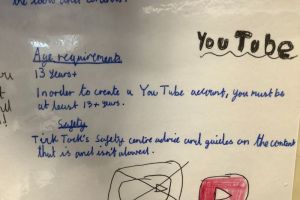 the
YouTube
Age requirements
13 years+
Inorder to create a YouTube account, you must be
at least 13+ years.
Safety
Tick Tock's Safety centre advice and guides on the content
that is and isn't allowed.